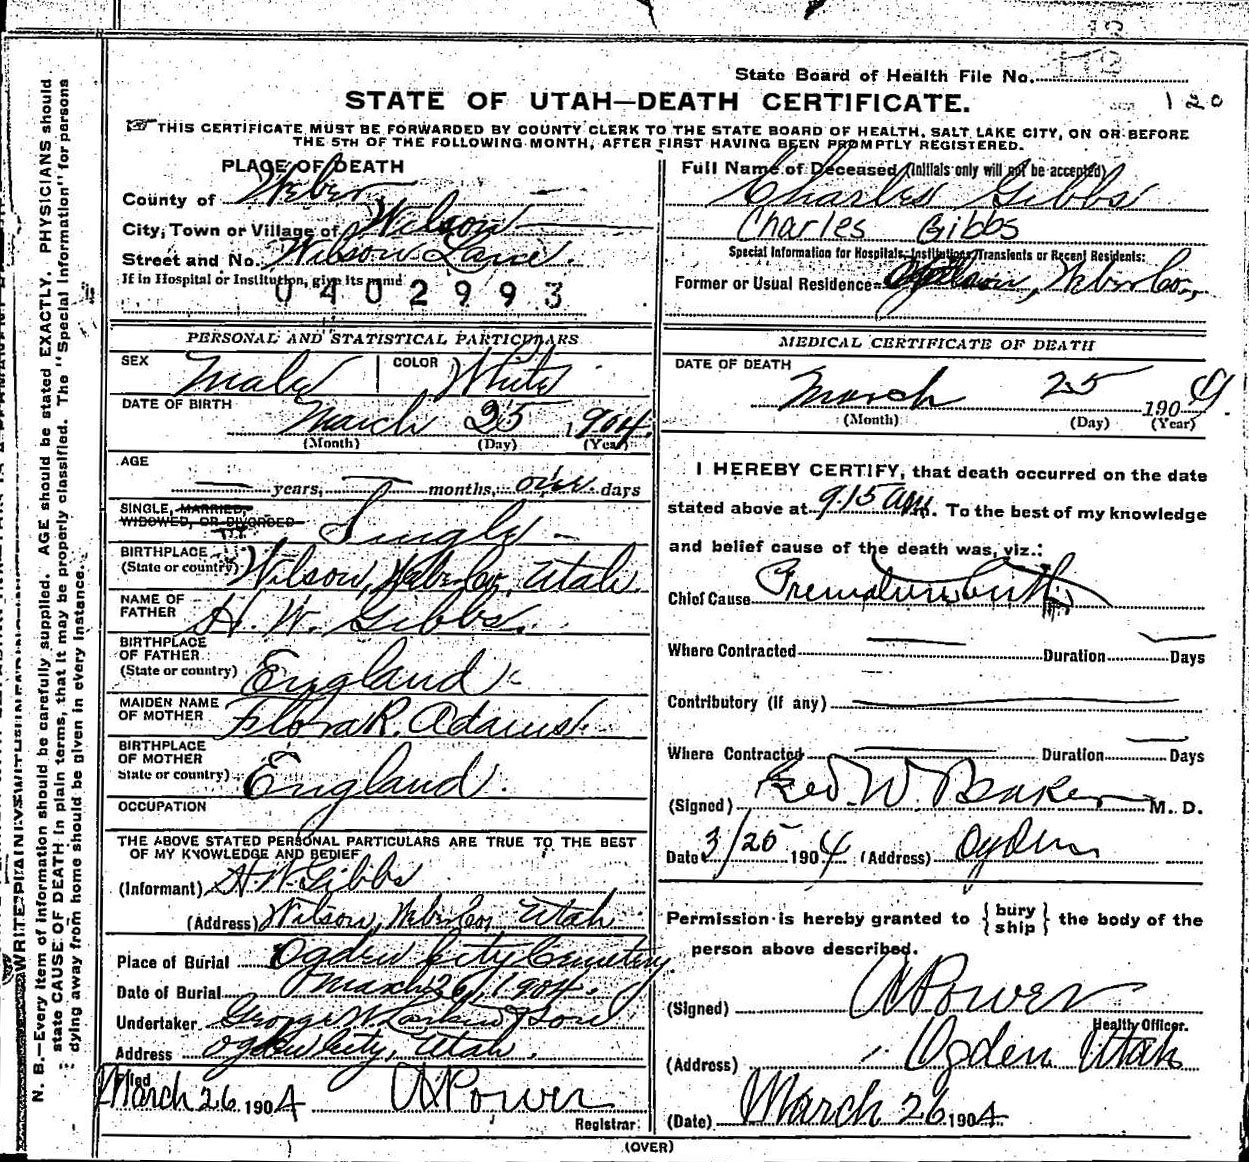 State Board of Health File No.
STATE OF UTAH—DEATH CERTIFICATE.
120
THIS CERTIFICATE MUST BE FORWARDED BY COUNTY CLERK TO THE STATE BOARD OF HEALTH, SALT LAKE CITY, ON OR BEFORE
THE 5TH OF THE FOLLOWING MONTH, AFTER FIRST HAVING BEEN PROMPTLY REGISTERED.
PLACE OF DEATH
County of Weber
City, Town or Village of Wilson
Street and No. Wilson Lane.
If in Hospital or Institution, give its name
0402993
PERSONAL AND STATISTICAL PARTICULARS
SEX Male COLOR White
DATE OF BIRTH March 25 1904.
(Month) (Day) (Year)
AGE
years, months, one days
SINGLE, MARRIED,
WIDOWED, OR DIVORCED Single
BIRTHPLACE
(State or country) Wilson, Weber Co, Utah.
NAME OF
FATHER H. W. Gibbs.
BIRTHPLACE
OF FATHER
(State or country) England
MAIDEN NAME
OF MOTHER Flora R. Adams
BIRTHPLACE
OF MOTHER
State or country) England.
OCCUPATION
THE ABOVE STATED PERSONAL PARTICULARS ARE TRUE TO THE BEST
OF MY KNOWLEDGE AND BEDIEF
(Informant) H. W. Gibbs
(Address) Wilson, Weber Co, Utah
Place of Burial Ogden City Cemetery
Date of Burial March 26, 1904.
Undertaker George W. Larkin & Son
Address Ogden City, Utah.
Filed
March 26 1904 A Power
Registrar.
Full Name of Deceased (Initials only will not be accepted)
Charles Gibbs
Charles Gibbs
Special Information for Hospitals, Institutions, Transients or Recent Residents:
Former or Usual Residence Wilson, Weber Co,
MEDICAL CERTIFICATE OF DEATH
DATE OF DEATH
March 25 1904
(Month) (Day) (Year)
I HEREBY CERTIFY, that death occurred on the date
stated above at 9.15 am. To the best of my knowledge
and belief cause of the death was, viz.:
Chief Cause Premature birth
Where Contracted Duration Days
Contributory (if any)
Where Contracted Duration Days
(Signed) Geo. W. Baker M. D.
Date 3/25 1904 (Address) Ogden
Permission is hereby granted to {bury ship} the body of the
person above described.
(Signed) A Power
Health Officer.
(Address) Ogden Utah
(Date) March 26 1904
(OVER)
N. B.—Every item of information should be carefully supplied. AGE should be stated EXACTLY. PHYSICIANS should
state CAUSE OF DEATH in plain terms, that it may be properly classified. The "Special Information" for persons
dying away from home should be given in every instance.